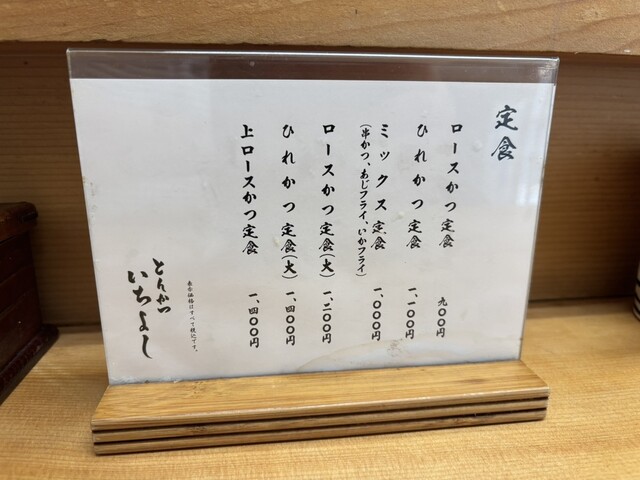 定食
ロースかつ定食 九〇〇円
ひれかつ定食 一、一〇〇円
ミックス定食 一、〇〇〇円
(串かつ、あじフライ、いかフライ)
ロースかつ定食(大) 一、二〇〇円
ひれかつ定食(大) 一、四〇〇円
上ロースかつ定食 一、四〇〇円
表示価格はすべて税込です。
とんかつ
いちよし